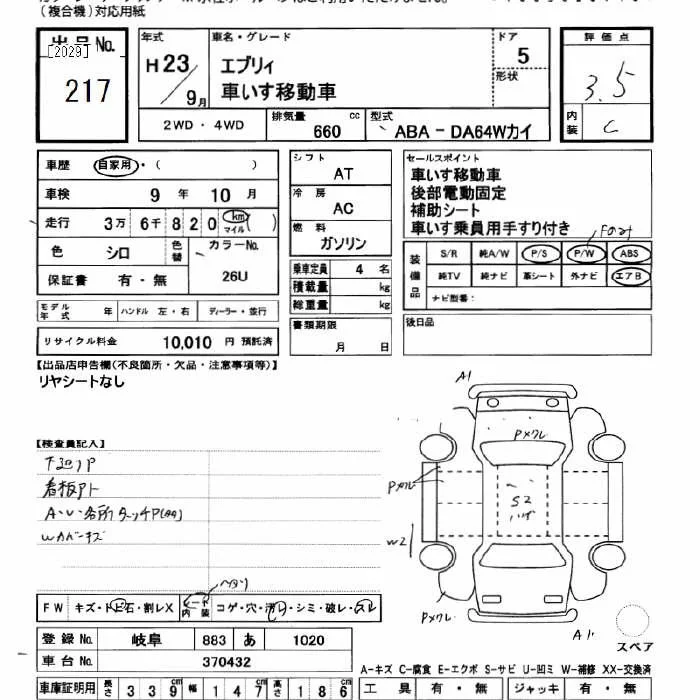 (複合機)対応用紙
出品No.
[2029]
217
年式
H23
9月
車名・グレード
エブリィ
車いす移動車
ドア
5
形状
2WD・4WD
排気量
660 cc
型式
ABA-DA64Wカイ
評価点
3.5
内装
C
車歴 自家用・( )
車検 9年 10月
走行 3万 6千 8 2 0 km マイル ( )
色 シロ 色替 カラーNo.
26U
保証書 有・無
モデル年式 年 ハンドル 左・右 ディーラー・並行
リサイクル料金 10,010 円 預託済
シフト
AT
冷房
AC
燃料
ガソリン
乗車定員 4 名
積載量 kg
総重量 kg
書類期限
月 日
セールスポイント
車いす移動車
後部電動固定
補助シート
車いす乗員用手すり付き
Fのみ
装備品
S/R 純A/W P/S P/W ABS
純TV 純ナビ 革シート 外ナビ エアB
ナビ型番:
後日品
【出品店申告欄(不良箇所・欠品・注意事項等)】
リヤシートなし
【検査員記入】
下廻りP
看板アト
A・U・各所タッチP
Wカバーキズ
A1
Pメクレ
Pメクレ
S2
ハゲ
W2
Pメクレ
A1
スペア
ヘタリ
FW キズ・トビ石・割レX シート内装 コゲ・穴・汚レ・シミ・破レ・スレ
登録No. 岐阜 883 あ 1020
車台No. 370432
A-キズ C-腐食 E-エクボ S-サビ U-凹ミ W-補修 XX-交換済
車庫証明用 長さ 339cm 幅 147cm 高さ 186cm
工具 有・無 ジャッキ 有・無